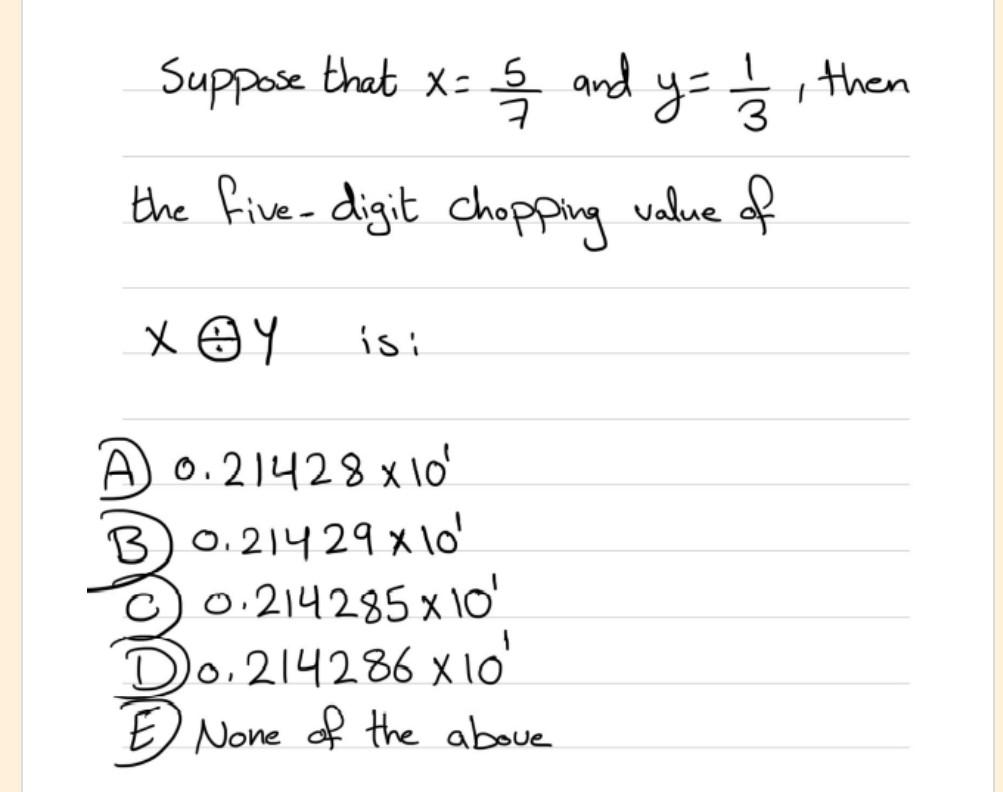 Suppose that x = 5/7 and y = 1/3, then
the five-digit chopping value of
x ⨸ y is:
A) 0.21428 x 10¹
B) 0.21429 x 10¹
C) 0.214285 x 10¹
D) 0.214286 x 10¹
E) None of the above